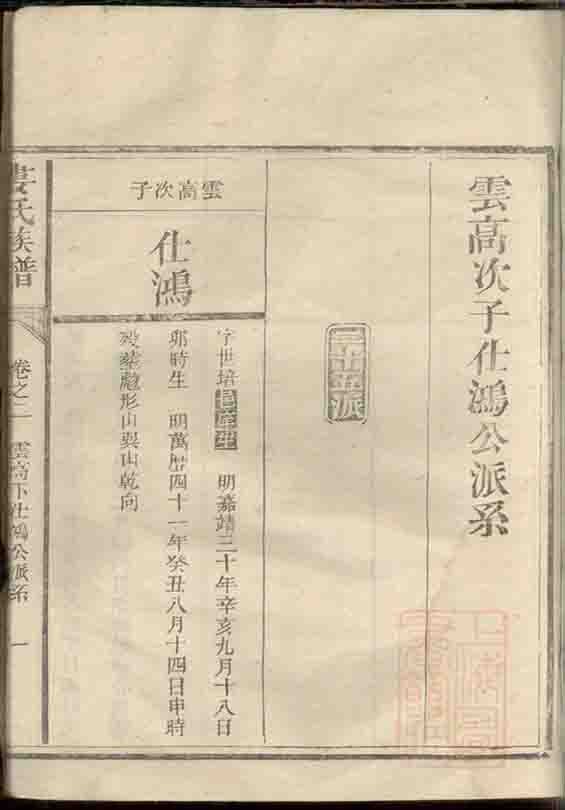 雲高次子仕鴻公派系
二十五派
雲高次子
仕鴻
字世培邑庠生 明嘉靖三十年辛亥九月十八日
卯時生 明萬曆四十一年癸丑八月十四日申時
歿葬 形山巽山乾向
氏族譜
卷之二 雲高下仕鴻公派系 一
上海圖書館藏